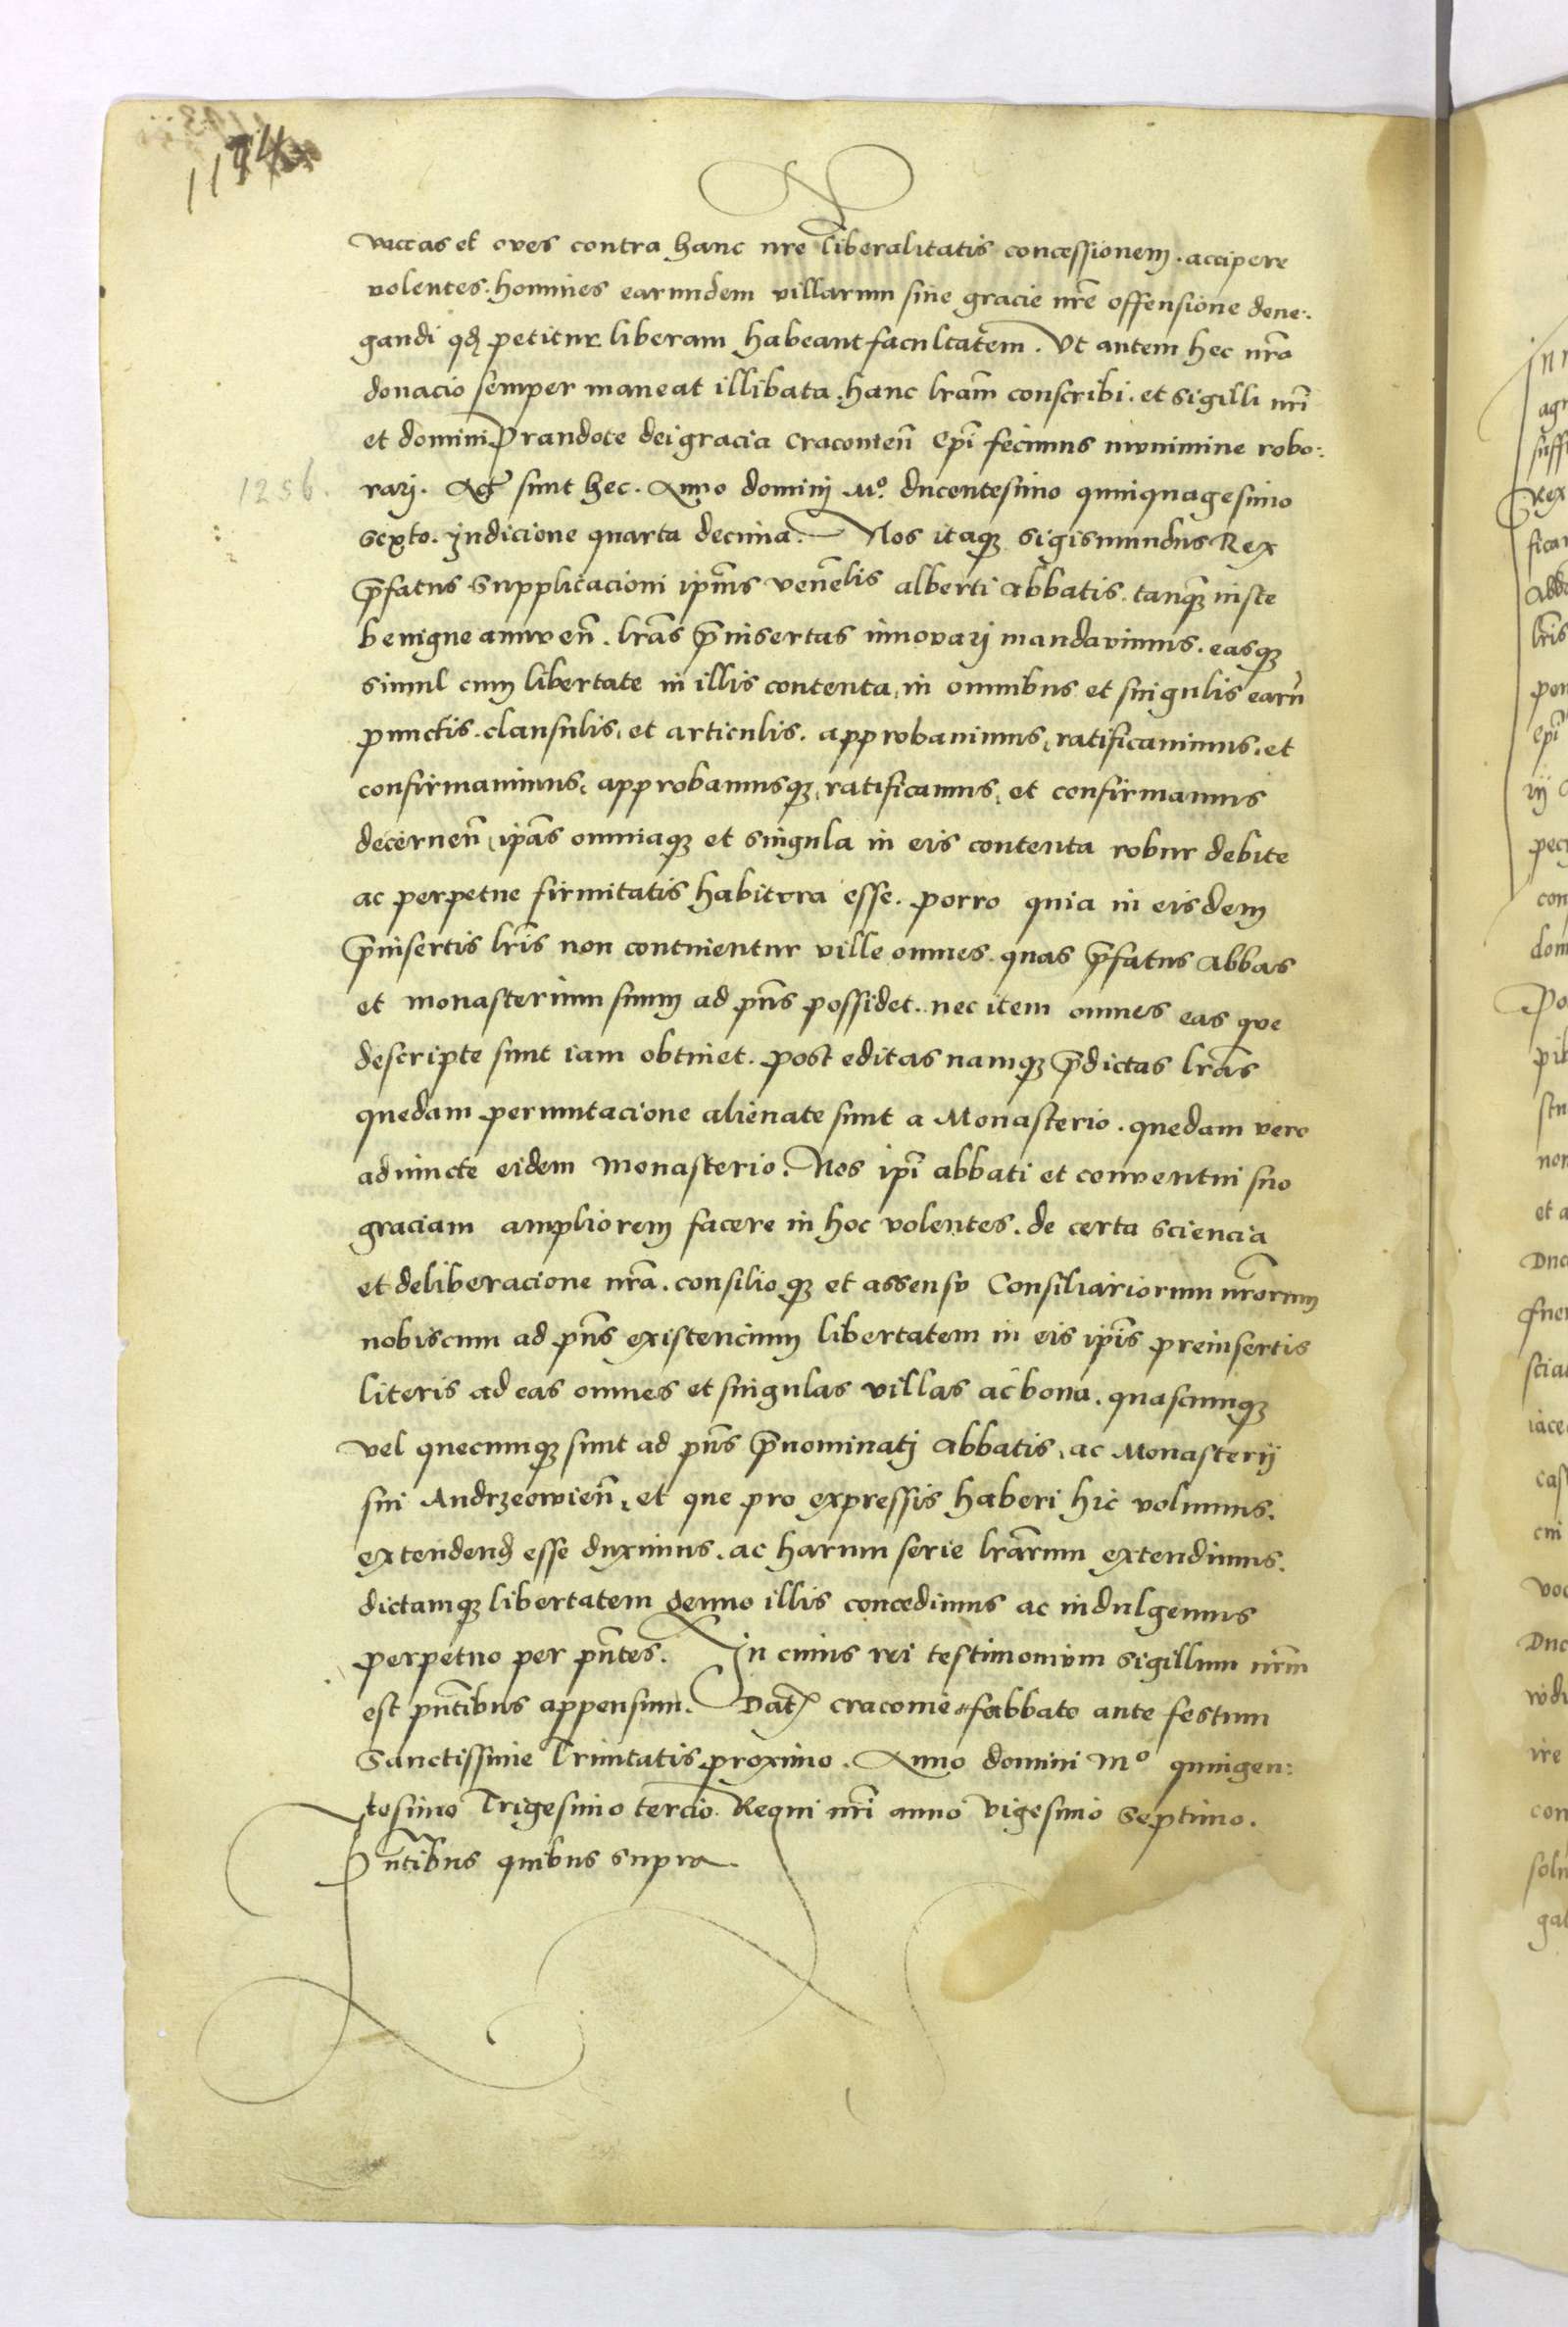 vaccas et oves contra hanc nr̄e liberalitatis concessionem. accipere
volentes. homines earundem villarum sine gracie nr̄e offensione dene:
gandi qđ petitur liberam habeant facultatem. Ut autem hec nr̄a
donacio semper maneat illibata. hanc lr̄am conscribi. et sigilli nr̄i
et domini Prandote dei gracia Cracovien̄ Ep̄i fecimus munimine robo:
1256. rarj. Acta sunt hec. Anno dominj Mº. ducentesimo quinquagesimo
sexto. Jndicione quarta decima. Nos itaqȝ Sigismundus Rex
p̄fatus supplicacioni ip̄ius ven̄elis alberti Abbatis. tanqȝ iuste
benigne annuen̄. lr̄as p̄insertas innovarj mandavimus. easqȝ
simul cum libertate in illis contenta, in omnibus et singulis earū
punctis. clausulis, et articulis. approbavimus, ratificavimus. et
confirmavimus, approbamusqȝ, ratificamus, et confirmamus
decernen̄, ip̄as omniaqȝ et singula in eis contenta robur debite
ac perpetue firmitatis habitura esse. Porro quia in eisdem
p̄insertis lr̄is non continentur ville omnes. quas p̄fatus Abbas
et monasterium suum ad pn̄s possidet. nec item omnes eas que
descripte sunt iam obtinet. Post editas namqȝ p̄dictas lr̄as
quedam permutacione alienate sunt a Monasterio. quedam vero
adiuncte eidem Monasterio. Nos ip̄i abbati et conventui suo
graciam ampliorem facere in hoc volentes. de certa sciencia
et deliberacione nr̄a. consilio qȝ et assensu Consiliariorum nr̄orum
nobiscum ad pn̄s existencium libertatem in eis ip̄is preinsertis
literis ad eas omnes et singulas villas ac bona. quascunqȝ
vel quecunqȝ sunt ad pn̄s p̄nominatj Abbatis, ac Monasterij
sui Andrzeowien̄, et que pro expressis haberi hic volumus.
extendenđ esse duximus. ac harum serie lr̄arum extendimus.
dictamqȝ libertatem denuo illis concedimus ac indulgemus
perpetuo per pn̄tes. In cuius rei testimonium sigillum nr̄m
est pn̄tibus appensum. Datȝ Cracovie sabbato ante festum
Sanctissime Trinitatis proximo. Anno domini Mº quingen:
tesimo Trigesimo tercio. Regni nr̄i anno vigesimo septimo.
Pn̄tibus quibus supra